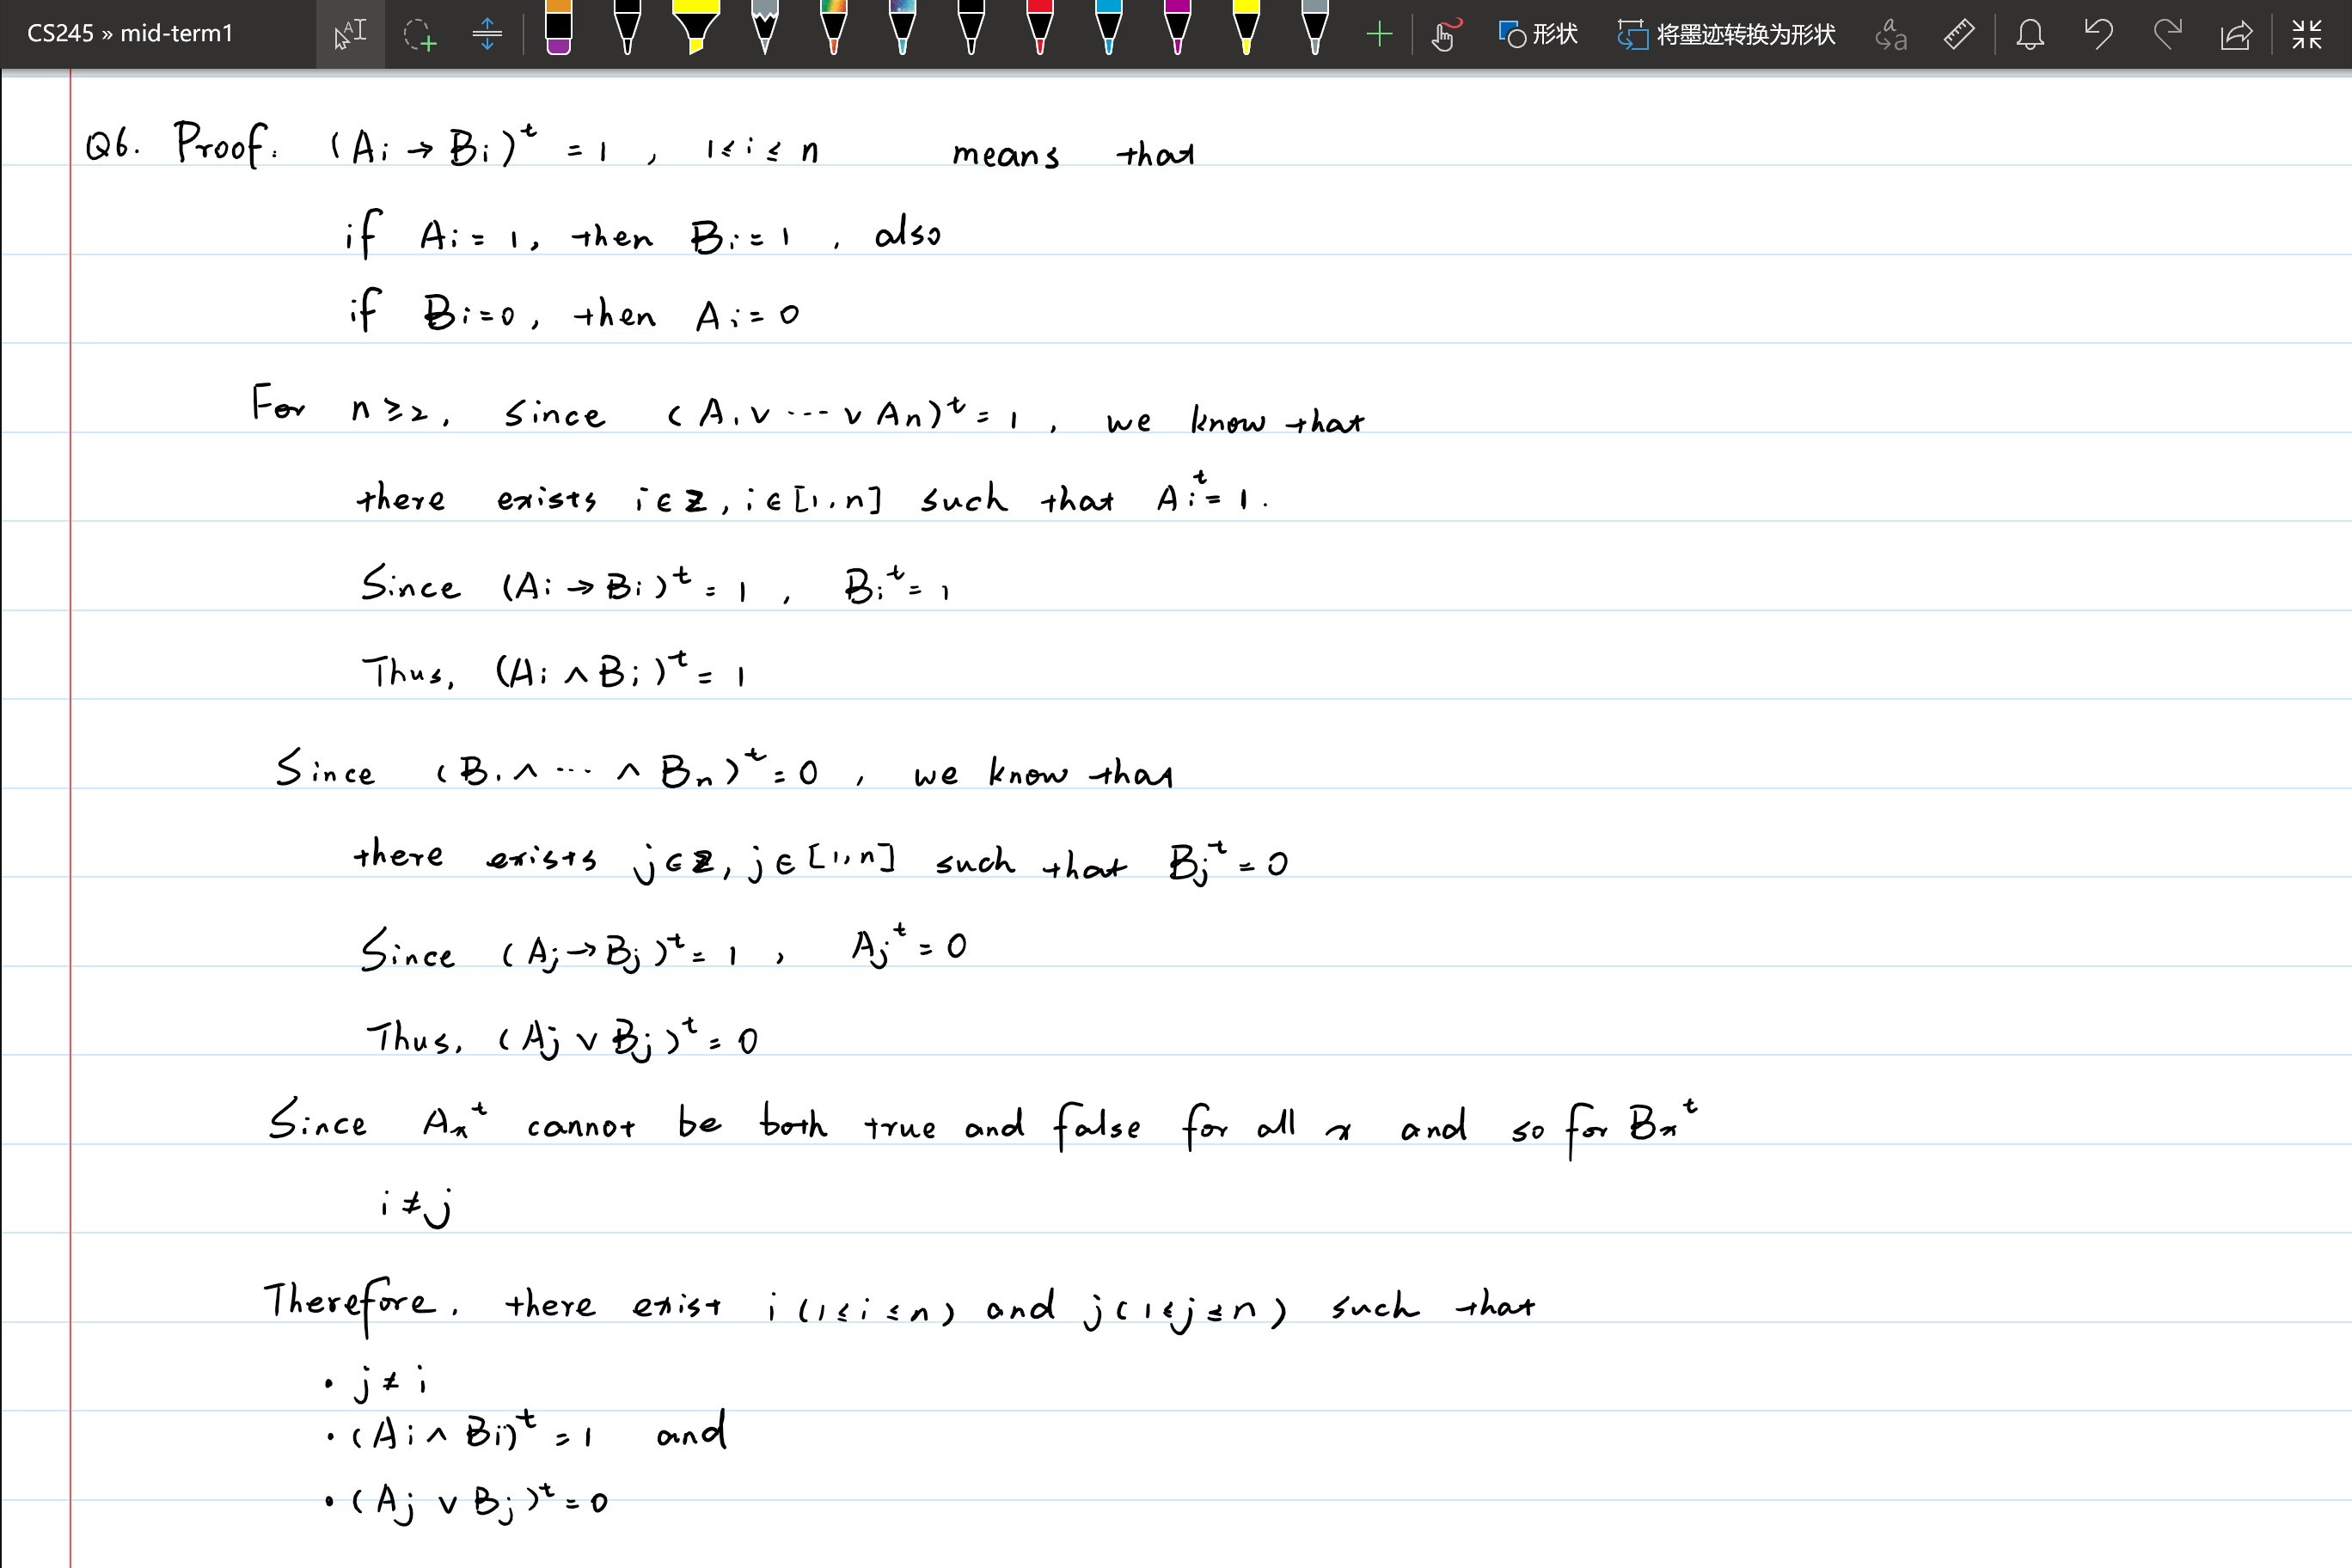 CS245 » mid-term1
形状
将墨迹转换为形状
Q6. Proof. (Ai → Bi)^t = 1 , 1 ≤ i ≤ n means that
if Ai = 1, then Bi = 1 , also
if Bi = 0, then Ai = 0
For n ≥ 2, since (A1 ∨ ··· ∨ An)^t = 1 , we know that
there exists i ∈ Z, i ∈ [1, n] such that Ai^t = 1.
Since (Ai → Bi)^t = 1 , Bi^t = 1
Thus, (Ai ∧ Bi)^t = 1
Since (B1 ∧ ··· ∧ Bn)^t = 0 , we know that
there exists j ∈ Z, j ∈ [1, n] such that Bj^t = 0
Since (Aj → Bj)^t = 1 , Aj^t = 0
Thus, (Aj ∨ Bj)^t = 0
Since Ax^t cannot be both true and false for all x and so for Bx^t
i ≠ j
Therefore, there exist i (1 ≤ i ≤ n) and j (1 ≤ j ≤ n) such that
• j ≠ i
• (Ai ∧ Bi)^t = 1 and
• (Aj ∨ Bj)^t = 0